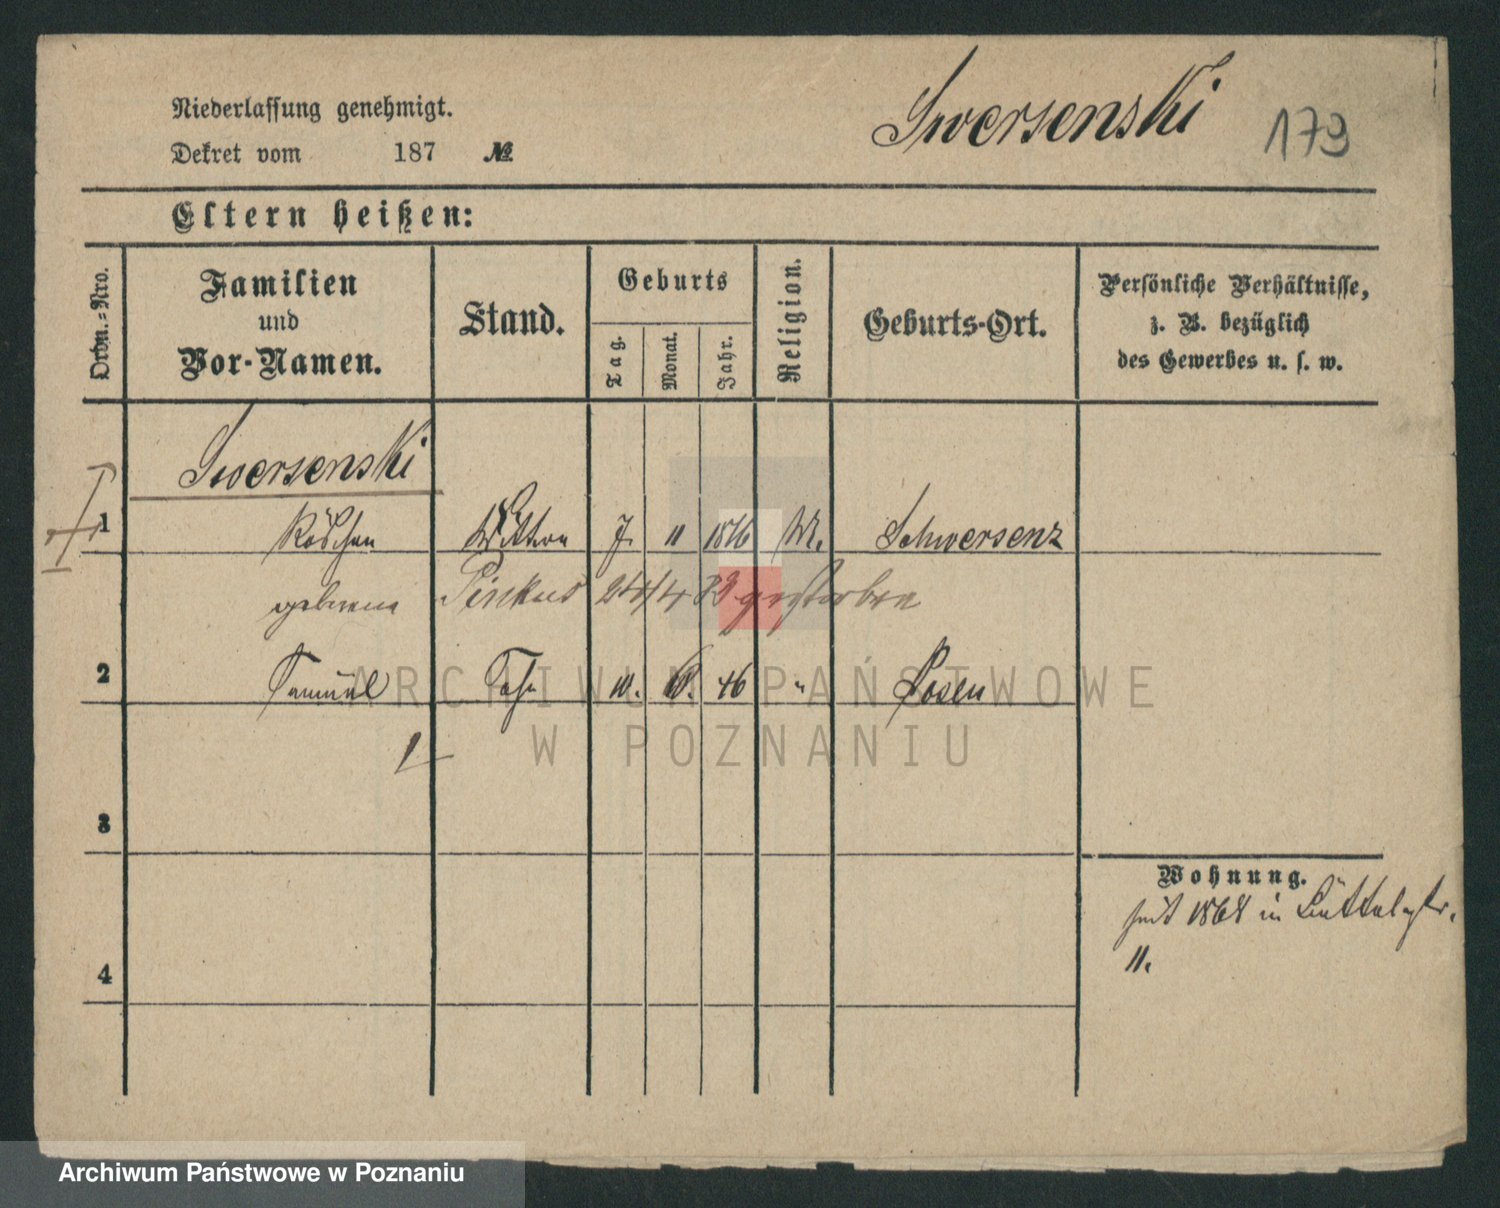 Niederlassung genehmigt.
Swersenski 173
Dekret vom 187 №
Eltern heißen:
Ordn.-Nro.
Familien und Vor-Namen.
Stand.
Geburts
Tag.
Monat.
Jahr.
Religion.
Geburts-Ort.
Persönliche Verhältnisse, z. B. bezüglich des Gewerbes u. s. w.
Swersenski
1 Röschen Wittwe 7. 11 1816 M. Schwersenz
geborene Pinkus 24/4 83 gestorben
2 Samuel Sohn 10. 46 " Posen
3
Wohnung.
seit 1868 in Büttelstr.
11.
4
ARCHIWUM PAŃSTWOWE
W POZNANIU
Archiwum Państwowe w Poznaniu